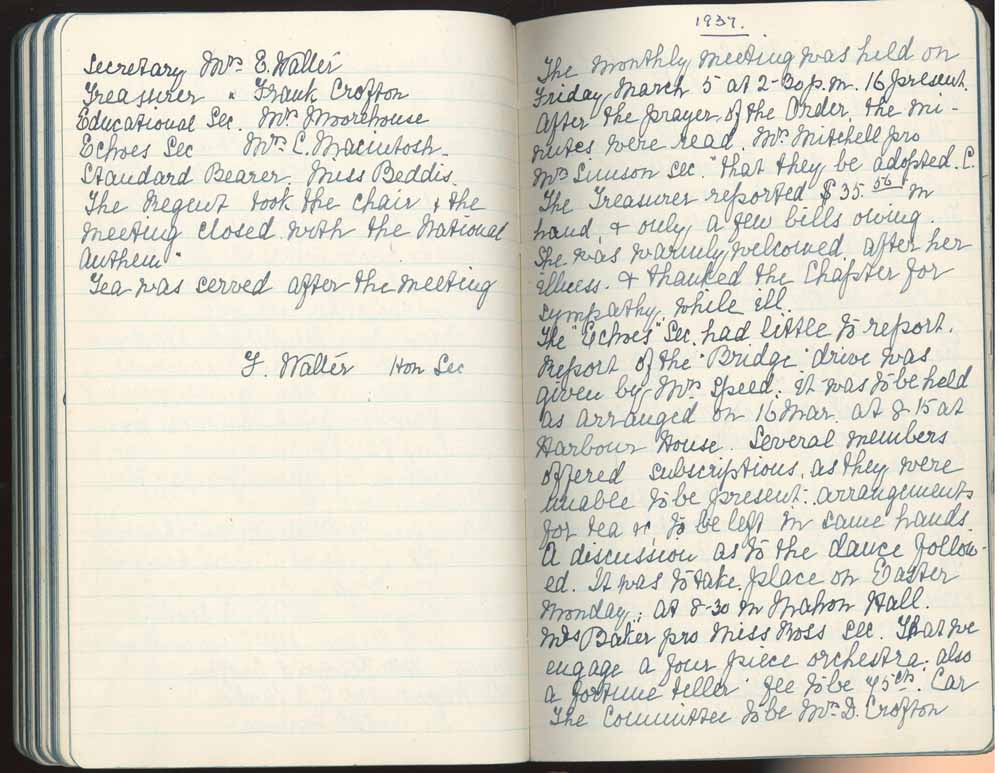 Secretary Mrs E. Walter
Treasurer " Frank Crofton
Educational Sec. Mrs Moorehouse
Echoes Sec Mrs C. Macintosh.
Standard Bearer. Miss Beddis.
The Regent took the chair & the
meeting closed with the National
Anthem"
Tea was served after the meeting
F. Walter Hon Sec
1937.
The monthly meeting was held on
Friday March 5 at 2-30 p.m. 16 present.
After the prayer of the Order, the mi-
nutes were read. Mrs Mitchell pro
Mrs Simson Sec. "that they be adopted. C.
The Treasurer reported $35.56 in
hand, & only a few bills owing.
She was warmly welcomed after her
illness. & thanked the Chapter for
sympathy while ill.
The "Echoes" Sec. had little to report.
Report of the "Bridge" drive was
given by Mrs Speed. it was to be held
as arranged on 16 Mar. at 8-15 at
Harbour House. Several members
offered subscriptions, as they were
unable to be present. arrangements
for tea &c to be left in same hands.
A discussion as to the dance follow-
ed. It was to take place on Easter
Monday, at 8-30 in Mahon Hall.
Mrs Baker pro Miss Ross Sec. That we
engage a four piece orchestra. also
a fortune teller" fee to be 75cts. Car
The Committee to be Mrs D. Crofton